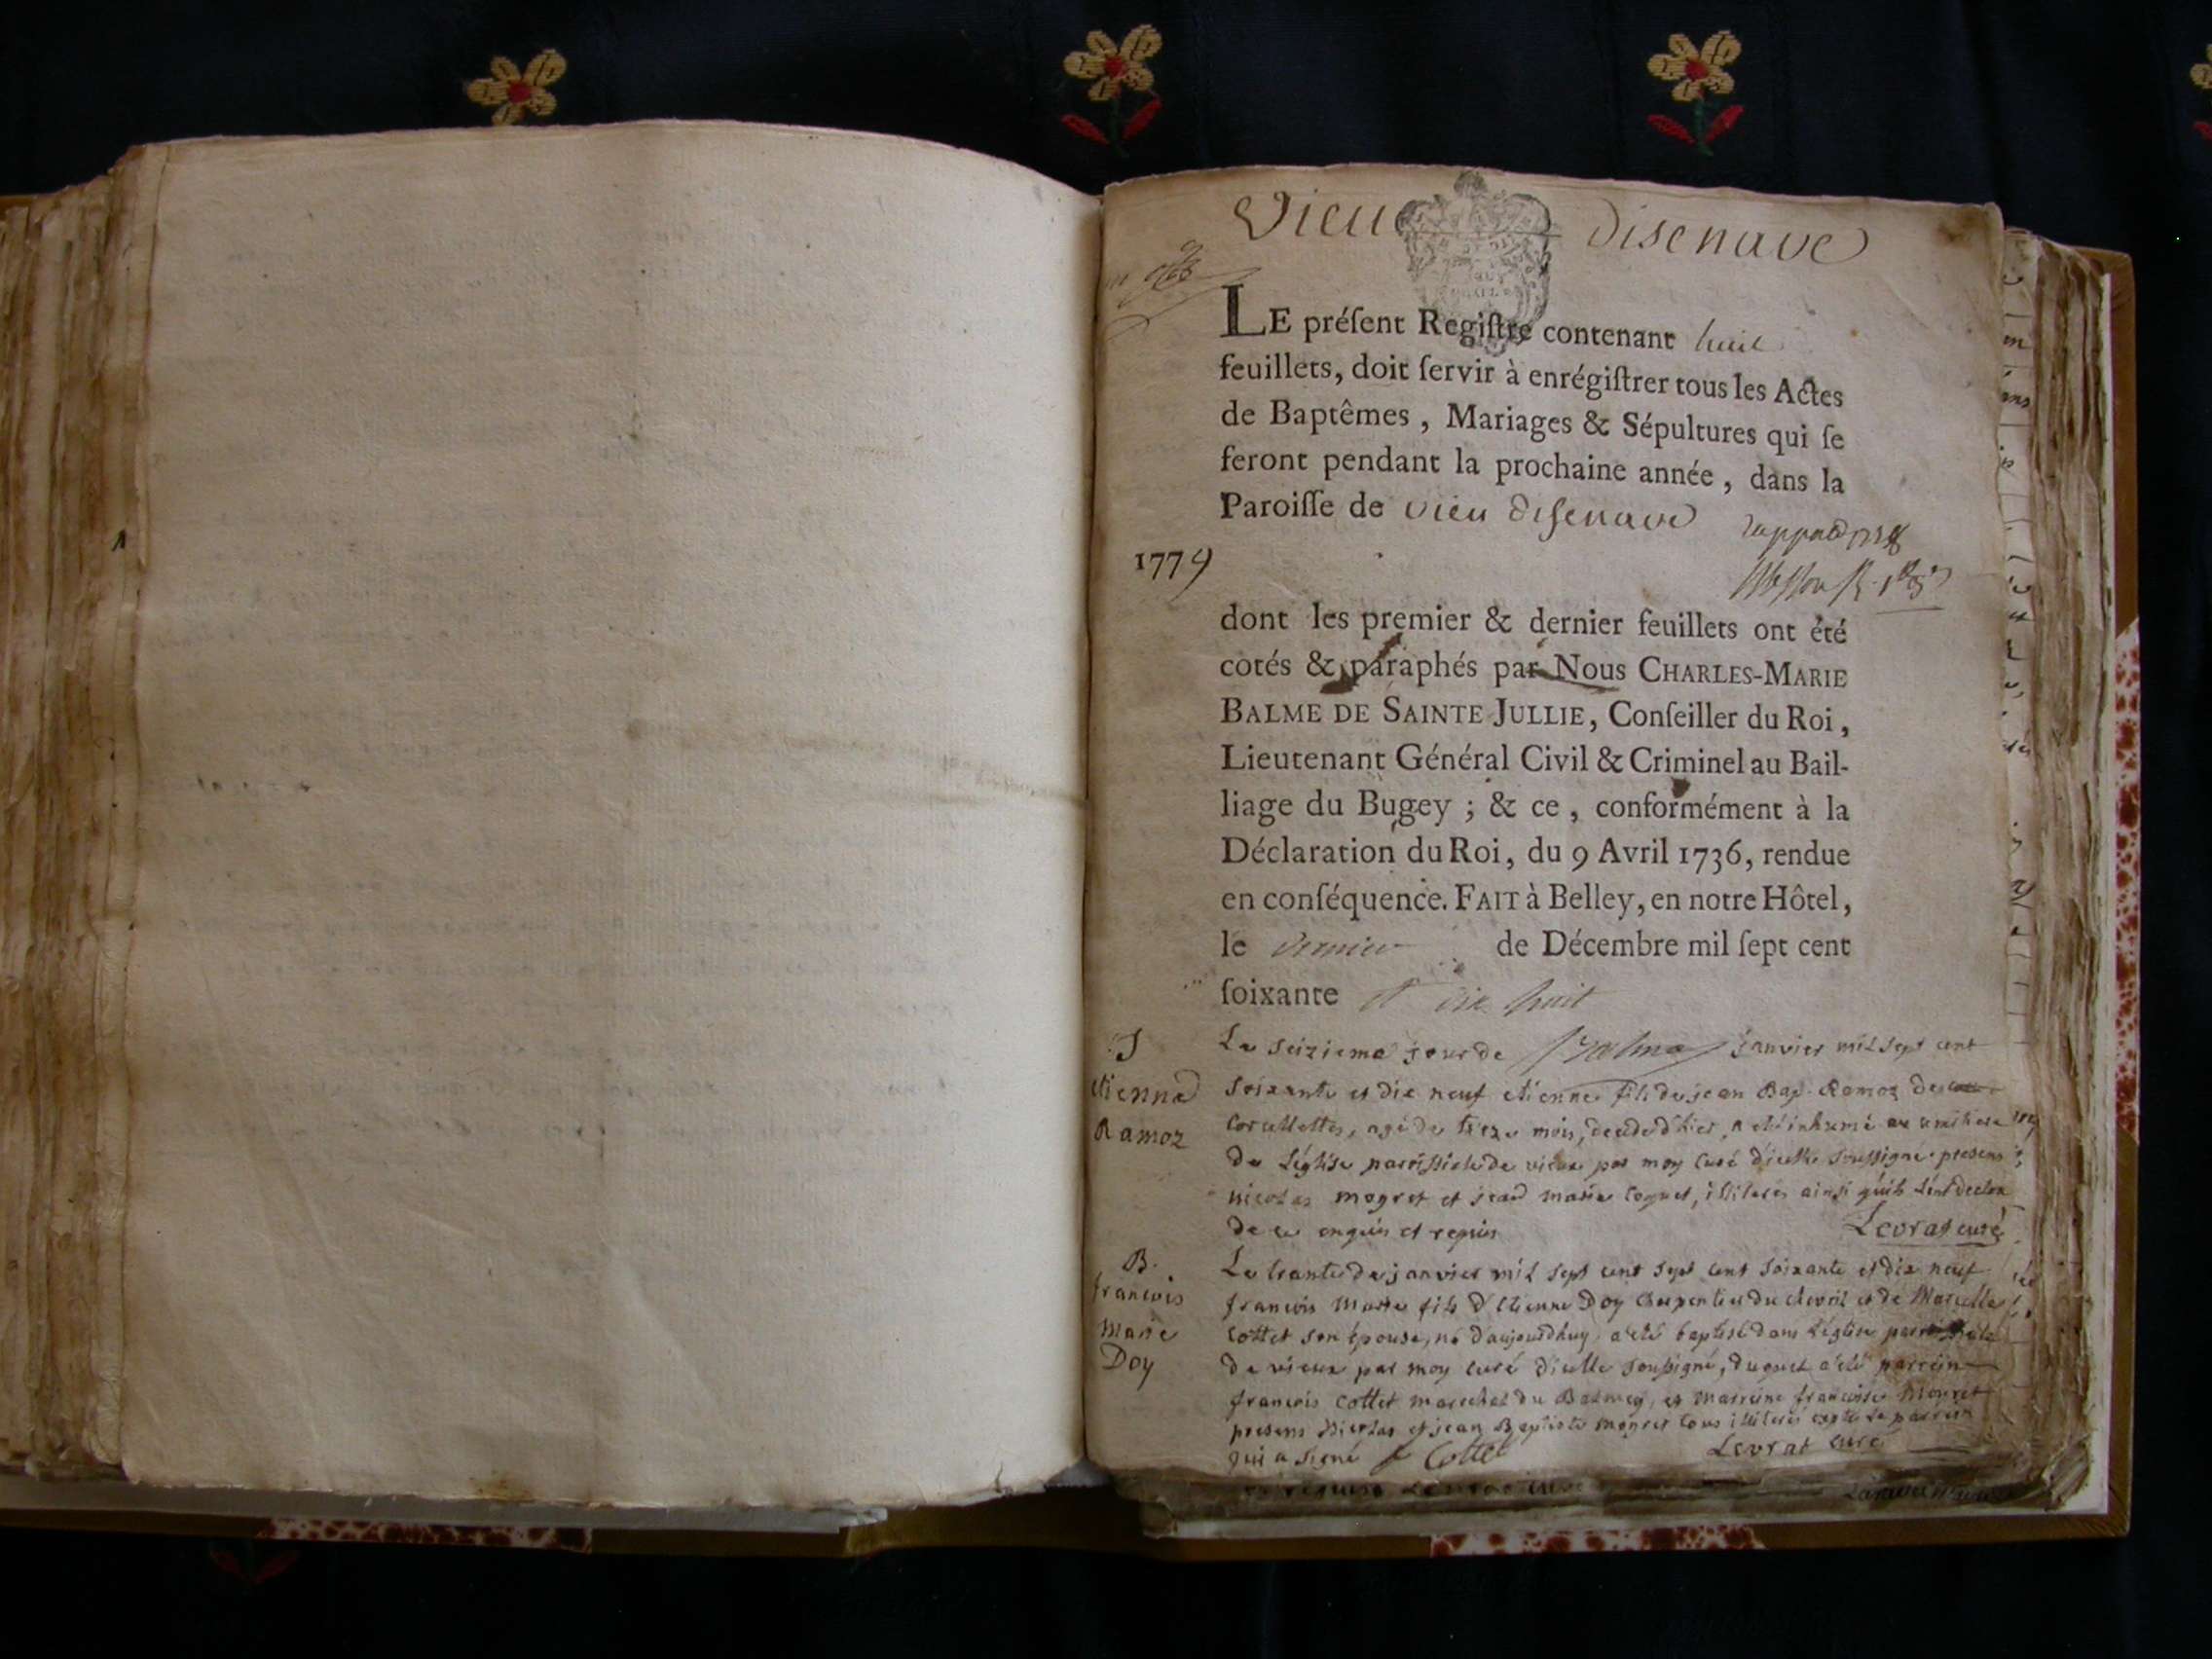 Vieu disenave
LE préſent Regiſtre contenant huit
feuillets, doit ſervir à enrégiſtrer tous les Actes
de Baptêmes, Mariages & Sépultures qui ſe
feront pendant la prochaine année, dans la
Paroiſſe de vieu diſenave
1779
dont les premier & dernier feuillets ont été
cotés & paraphés par Nous CHARLES-MARIE
BALME DE SAINTE JULLIE, Conſeiller du Roi,
Lieutenant Général Civil & Criminel au Bail-
liage du Bugey ; & ce, conformément à la
Déclaration du Roi, du 9 Avril 1736, rendue
en conſéquence. FAIT à Belley, en notre Hôtel,
le dernier de Décembre mil ſept cent
ſoixante et dix huit
S
etienne
Ramoz
Le seizieme jour de Balme janvier mil sept cent
soixante et dix neuf etienne fils de jean Bap. Ramoz de
Corcellettes, agé de treze mois, decedé d'hier, a eté inhumé au
de l'église parroissiale de vieux par moy curé d'icelle soussigné presens
nicolas mogret et jean marie coquet, illiterés ainsi qu'ils l'ont declaré
de ce enquis et requis Levrat curé
B.
francois
Marie
Doy
Le trante de janvier mil sept cent sept cent soixante et dix neuf
francois Marie fils d'Etienne Doy charpentier du chevril et de Marcelle
Cottet son épouse, né d'aujourdhuy, a eté baptisé dans l'église parroissiale
de vieux par moy curé d'icelle soussigné, duquel a eté parrein
francois Cottet marechal du Balmey, et marreine francoise Mogret
presens Nicolas et jean Baptiste mogret tous illiterés excepté le parrein
qui a signé f Cottet Levrat curé